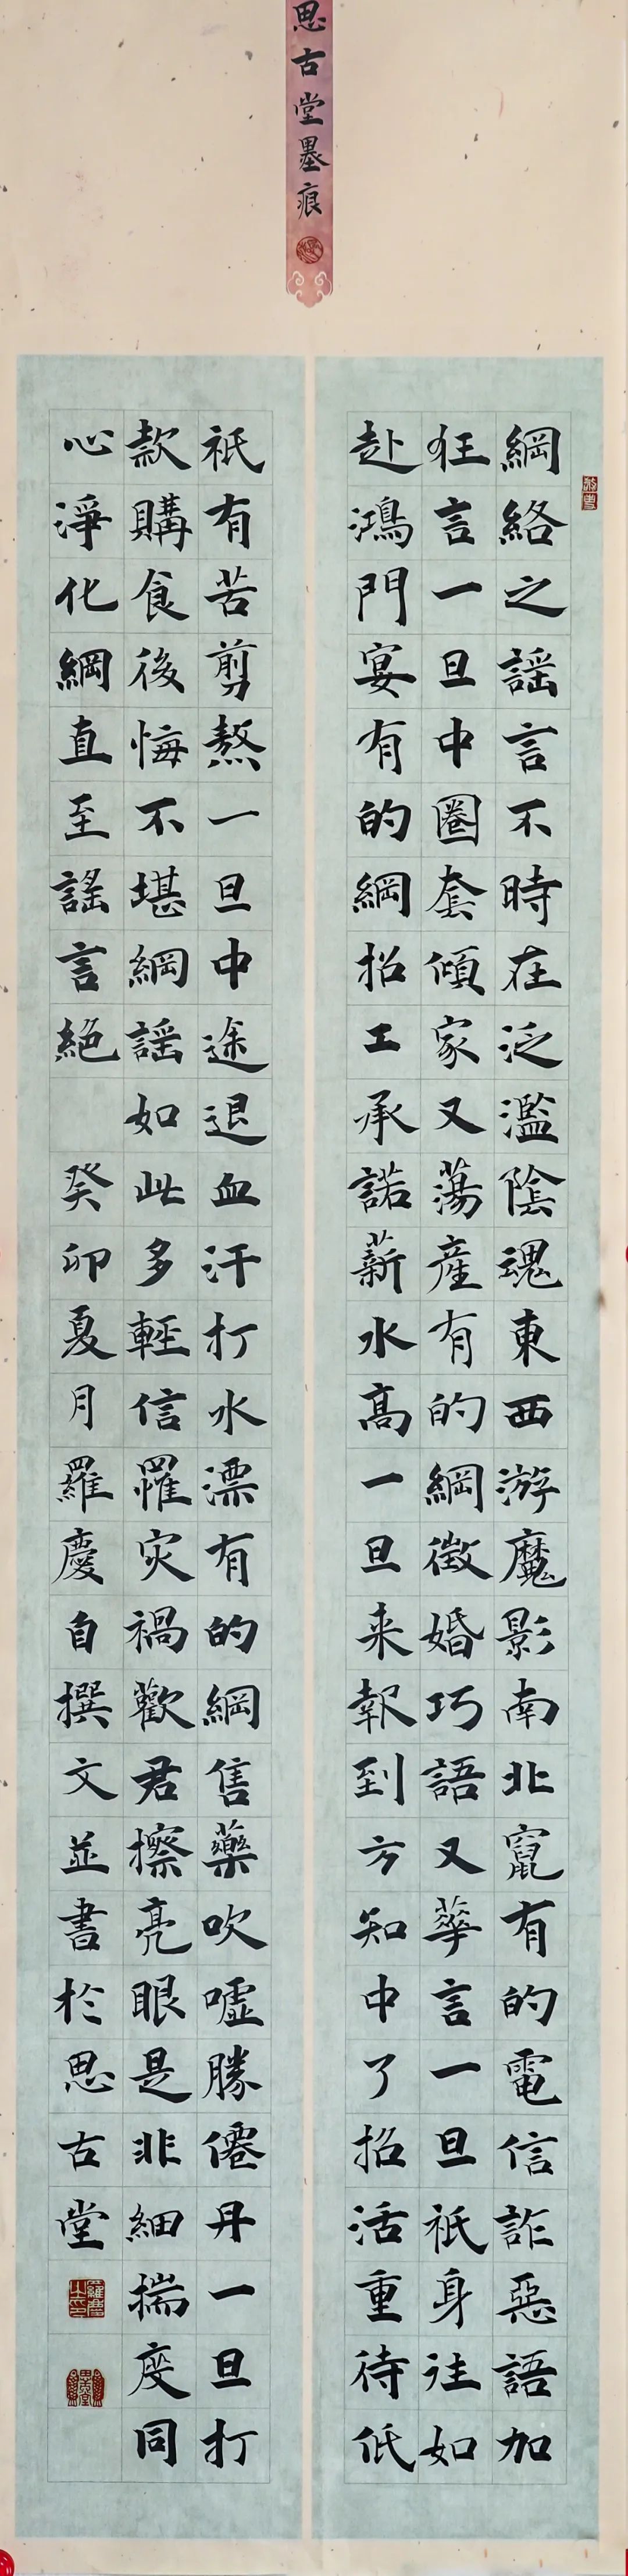 思古堂墨痕
網絡之謡言不時在泛濫陰魂東西游魔影南北竄有的電信詐惡語加
狂言一旦中圈套傾家又蕩産有的網徵婚巧語又華言一旦祇身往如
赴鴻門宴有的網招工承諾薪水高一旦来報到方知中了招活重待低
祇有苦剪熬一旦中途退血汗打水漂有的網售藥吹噓勝僊丹一旦打
款購食後悔不堪網謡如此多輕信罹灾禍歡君擦亮眼是非細揣度同
心淨化網直至謡言絕 癸卯夏月羅慶自撰文並書於思古堂